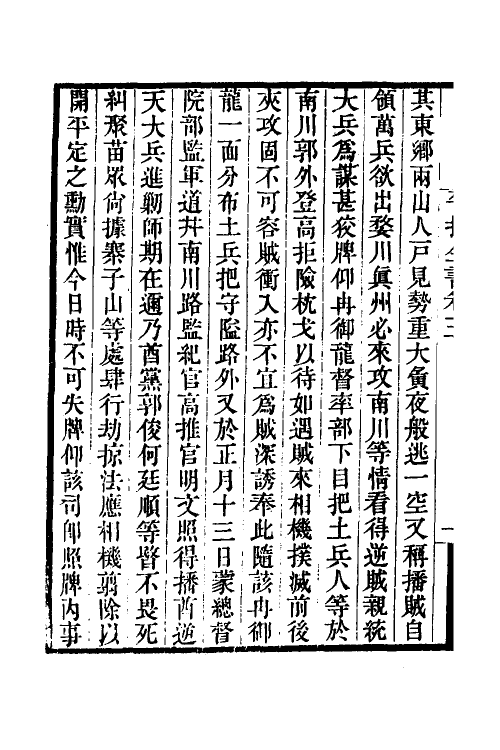 其東鄉兩山人戶見勢重大夤夜般逃一空又稱播賊自
領萬兵欲出婺川眞州必來攻南川等情看得逆賊親統
大兵爲謀甚狡牌仰冉御龍督率部下目把土兵人等於
南川郭外登高拒險枕戈以待如遇賊來相機撲滅前後
夾攻固不可容賊衝入亦不宜爲賊深誘奉此隨該冉御
龍一面分布土兵把守隘路外又於正月十三日蒙總督
院部監軍道幷南川路監紀官高推官明文照得播酋逆
天大兵進勦師期在邇乃酋黨郭俊何廷順等皆不畏死
糾聚苗眾尙據寨子山等處肆行劫掠法應相機翦除以
開平定之勳實惟今日時不可失牌仰該司卽照牌內事